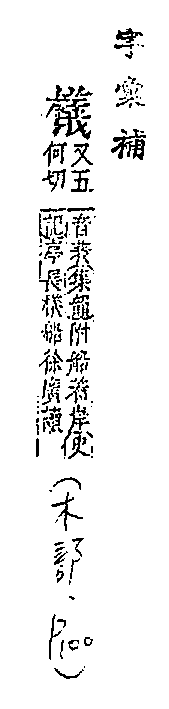 字彙補
檥 又五何切音莪集韻附船著岸史記亭長檥船徐廣讀
(木部、P100)